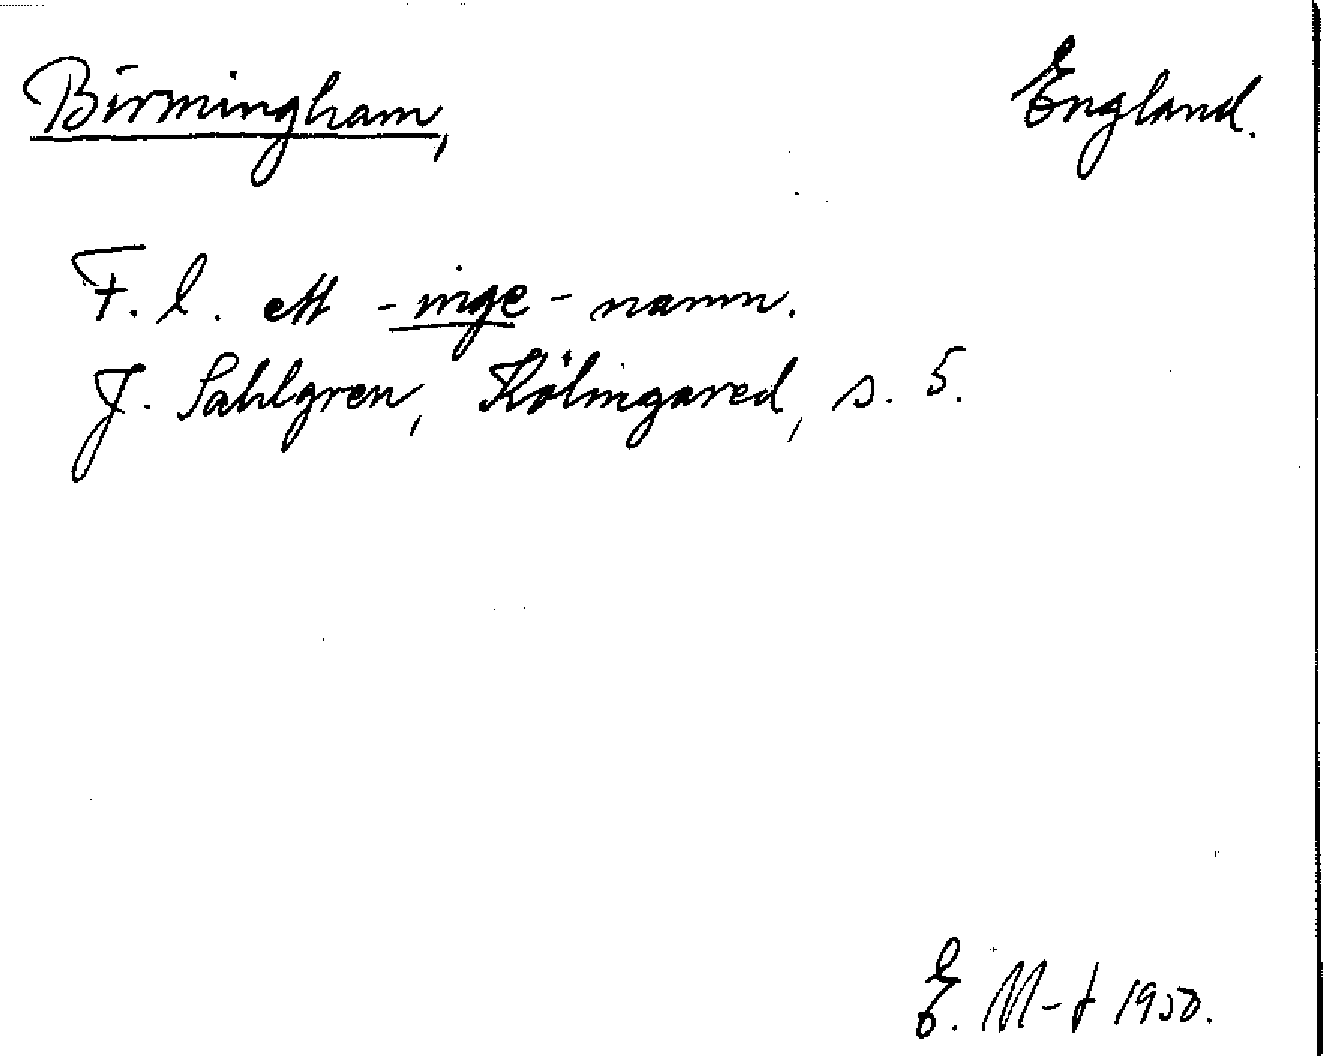 Birmingham, England.
F. l. ett -inge- namn.
J. Sahlgren, Kölingared, s. 5.
E. M-t 1950.